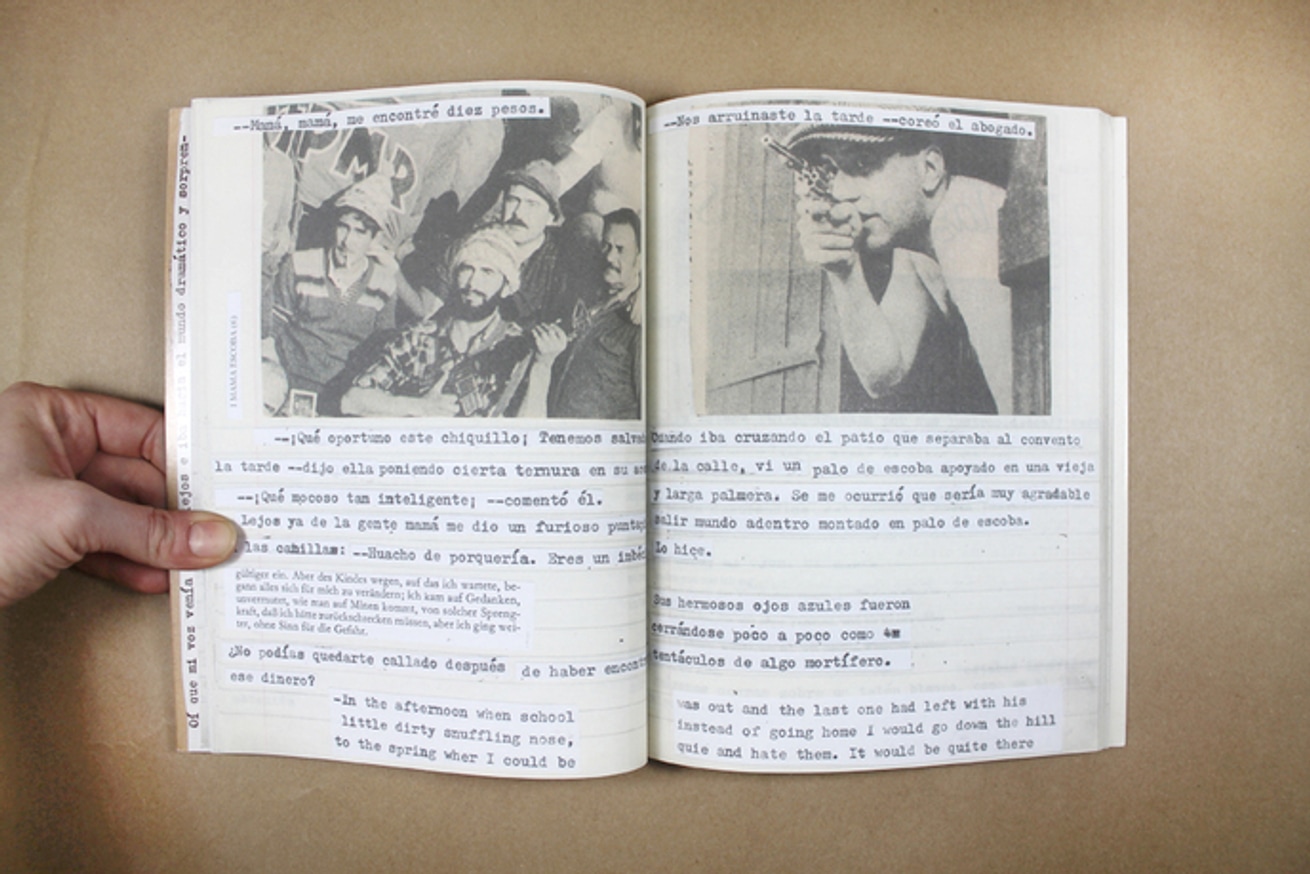 Oí que mi voz venía lejos e iba hacia el mundo dramático y sorpren-
--Mamá, mamá, me encontré diez pesos.
MAMA ESCOBA
--¡Qué oportuno este chiquillo¡ Tenemos salva
la tarde --dijo ella poniendo cierta ternura en su
--¡Qué mocoso tan inteligente¡ --comentó él.
Lejos ya de la gente mamá me dio un furioso
las canillas: --Huacho de porquería. Eres un imbéc
gültiger ein. Aber des Kindes wegen, auf das ich wartete, be-
gann alles sich für mich zu verändern; ich kam auf Gedanken,
unvermutet, wie man auf Minen kommt, von solcher Spreng-
kraft, daß ich hätte zurückschrecken müssen, aber ich ging wei-
ter, ohne Sinn für die Gefahr.
¿No podías quedarte callado después de haber encont
ese dinero?
-In the afternoon when school
little dirty snuffling nose,
to the spring wher I could be
--Nos arruinaste la tarde --coreó el abogado.
Cuando iba cruzando el patio que separaba al convento
de la calle, vi un palo de escoba apoyado en una vieja
y larga palmera. Se me ocurrió que sería muy agradable
salir mundo adentro montado en palo de escoba.
Lo hice.
Sus hermosos ojos azules fueron
cerrándose poco a poco como
tentáculos de algo mortífero.
was out and the last one had left with his
instead of going home I would go down the hill
quie and hate them. It would be quite there